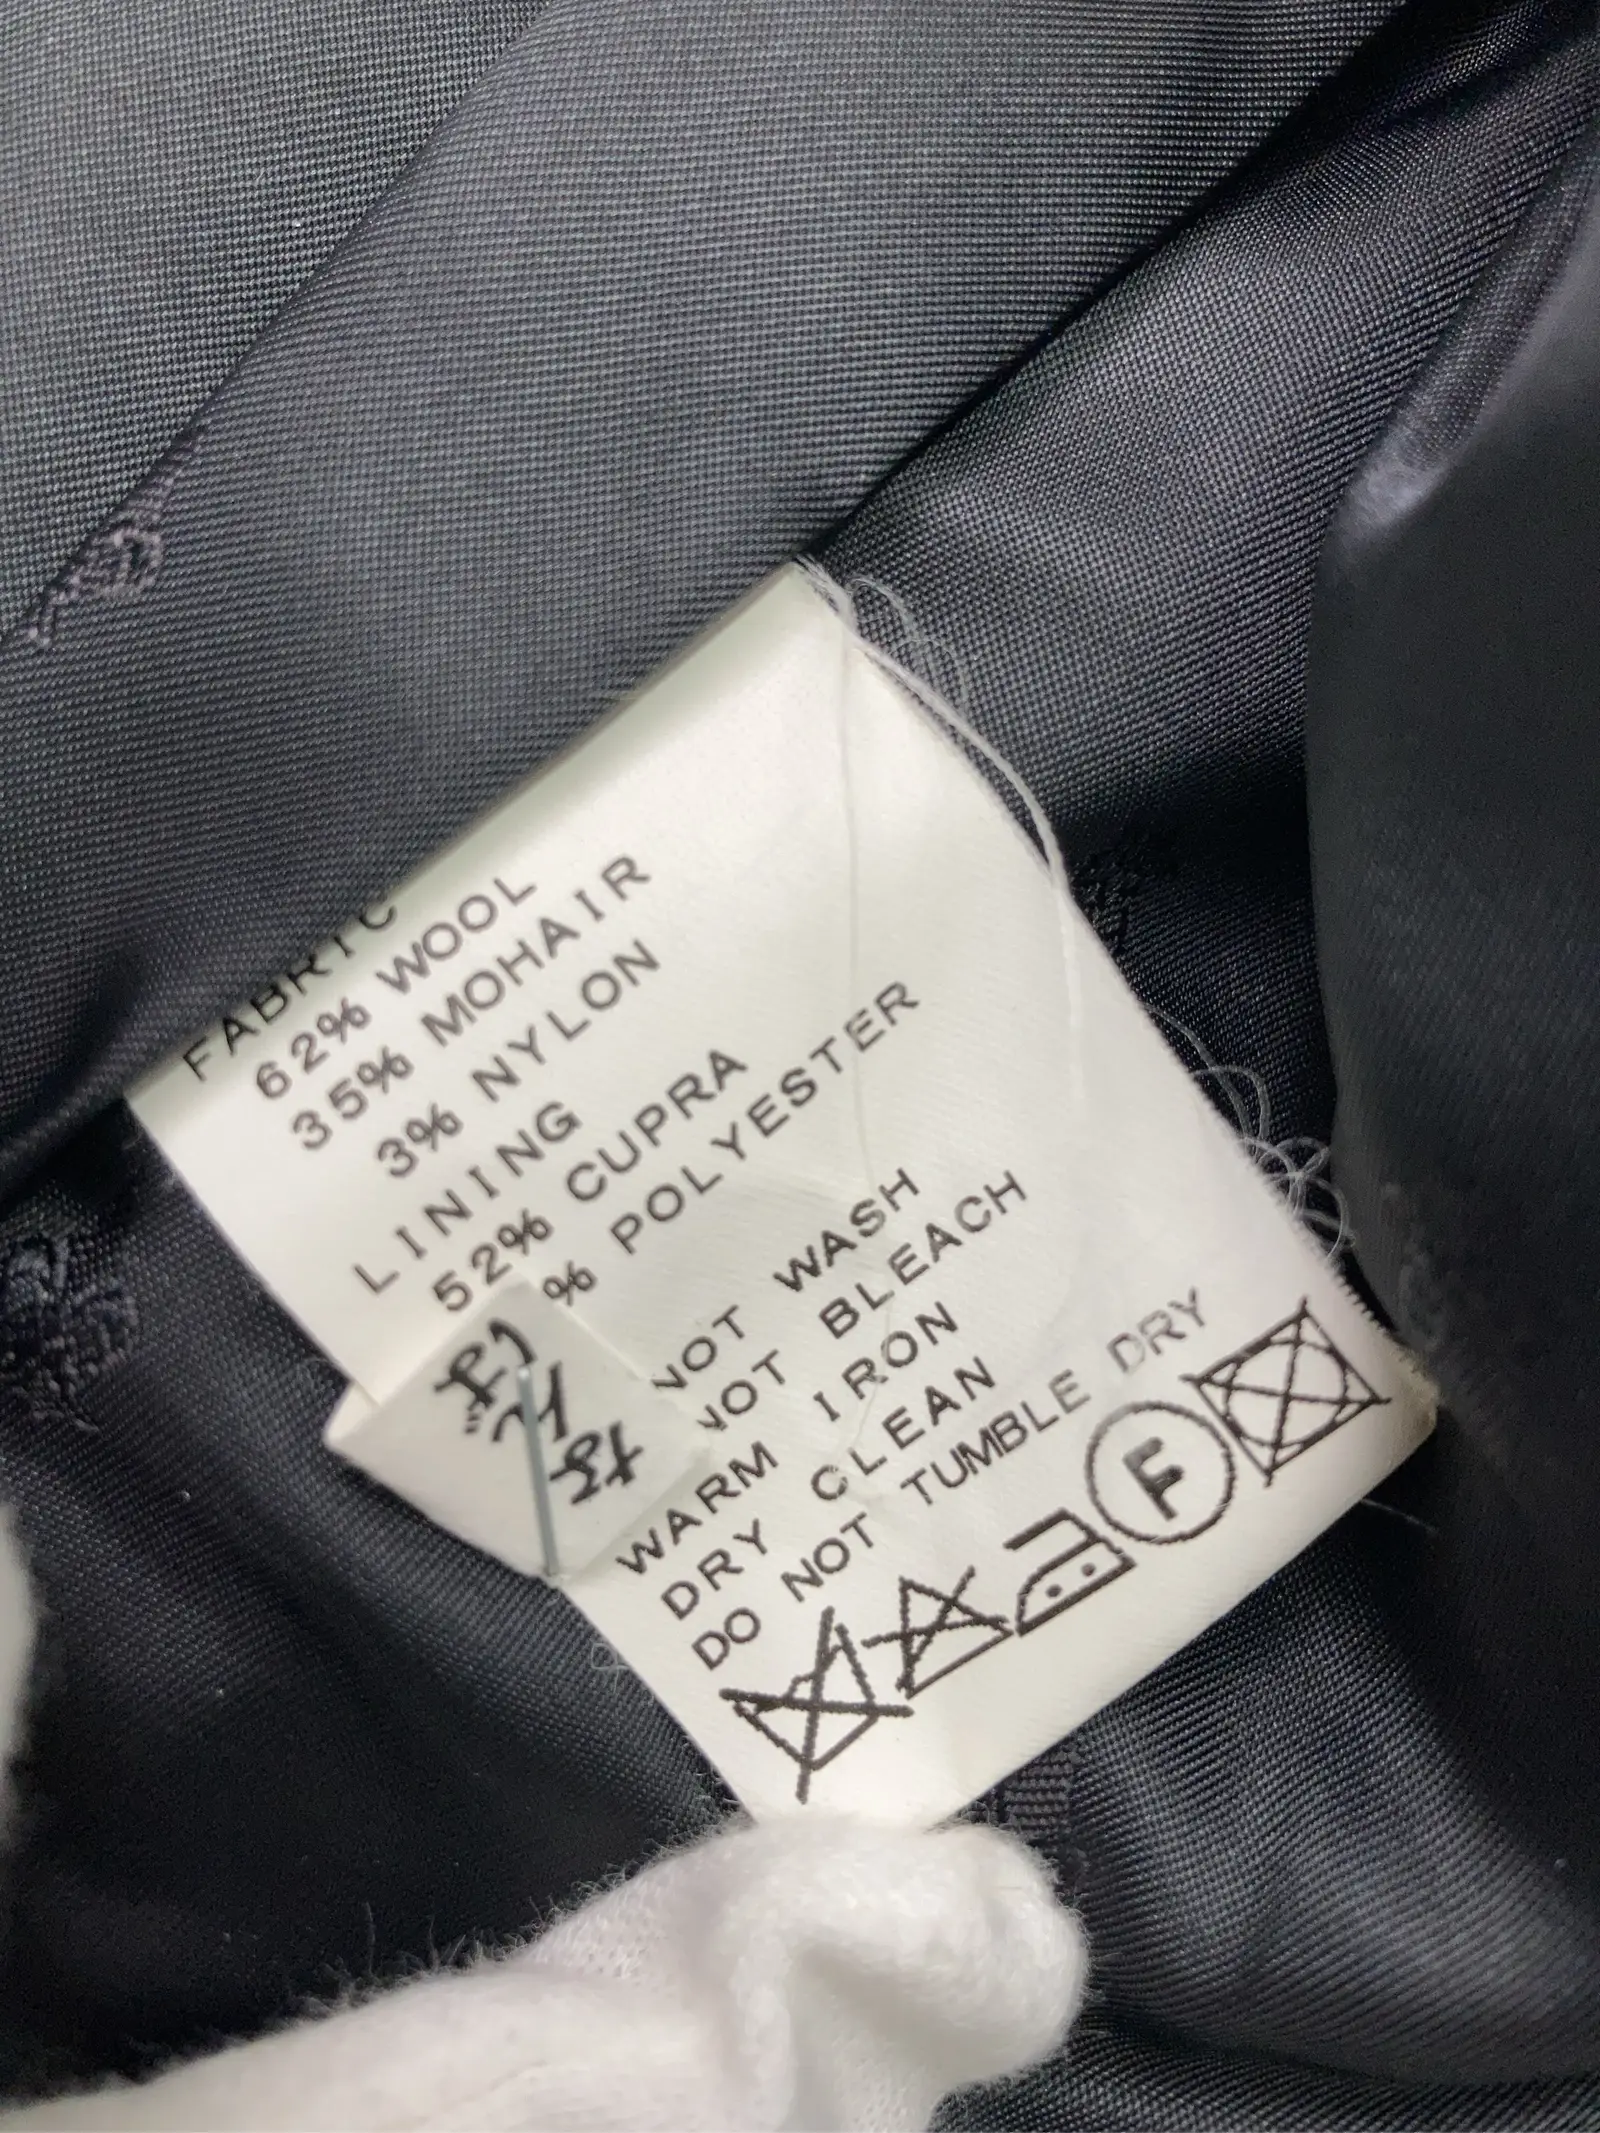 FABRIC
62% WOOL
35% MOHAIR
3% NYLON
LINING
52% CUPRA
% POLYESTER
NOT WASH
NOT BLEACH
WARM IRON
DRY CLEAN
DO NOT TUMBLE DRY
F